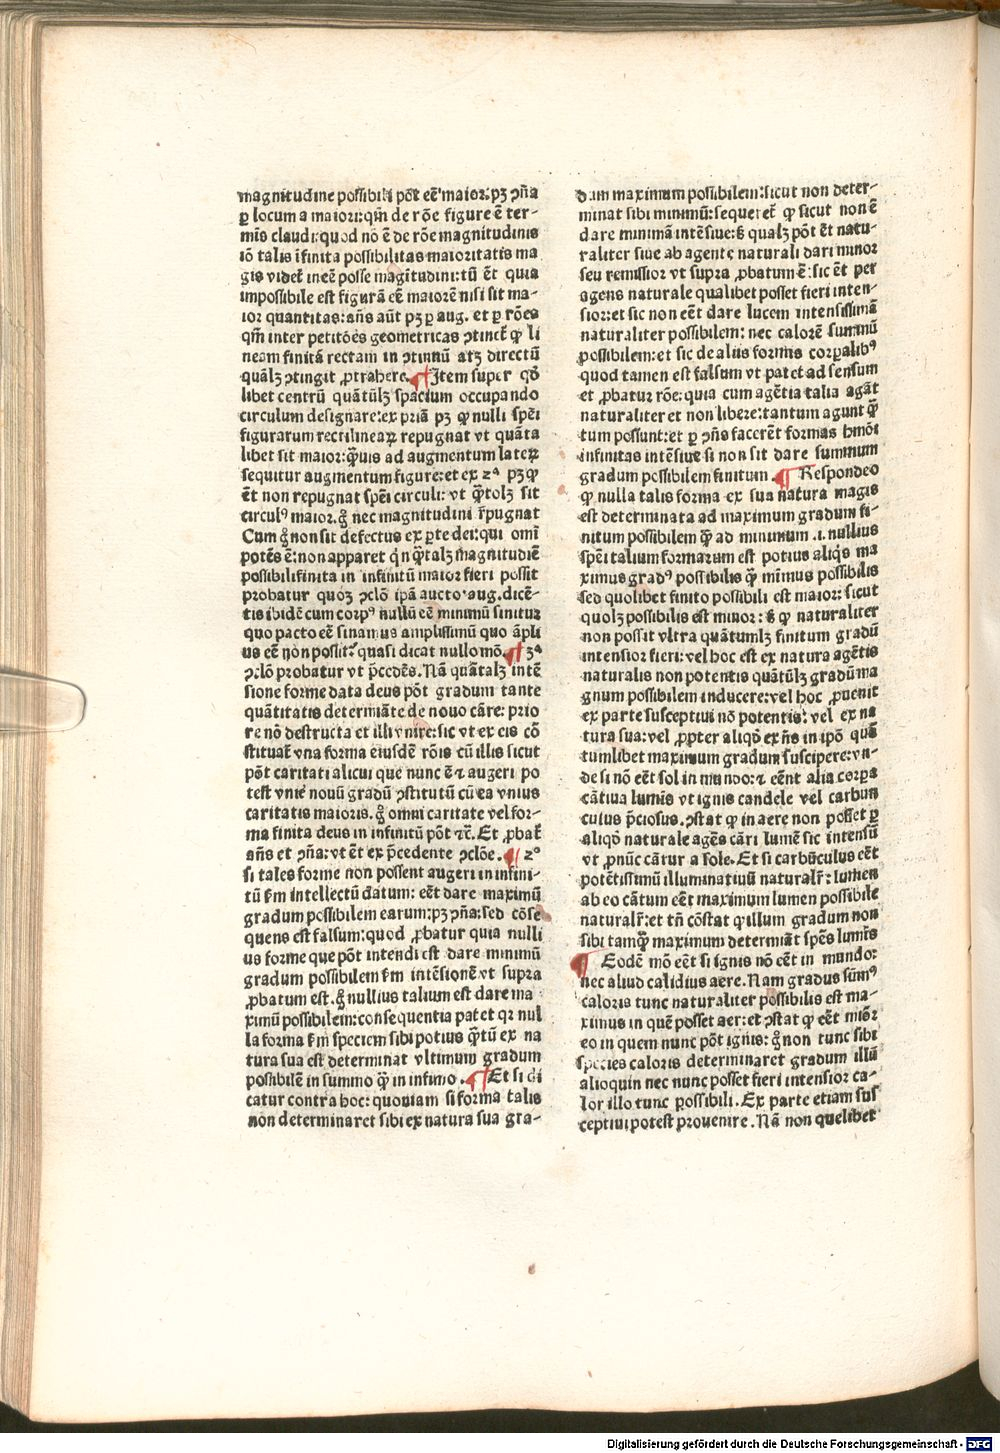 magnitudine possibili pōt eē maior: pꝫ ↄña
ꝑ locum a maiori: qm̄ de rōe figure ē ter-
mīs claudi: quod nō ē de rōe magnitudinis
iō talis īfinita possibilitas maioritatis ma
gis videt̄ ineē posse magītudini: tū ēt quia
impossibile est figurā eē maiorē nisi sit ma-
ior quantitas: añs aūt pꝫ ꝑ aug. et ꝑ rōes
qm̄ inter petitōes geometricas ↄtinet̄ ꝙ li
neam finitā rectam in ↄtinnū atꝫ directū
quālꝫ ↄtingit ꝓtrahere. ¶ Item super qd̄
libet centrū quātūlꝫ spacium occupando
circulum designare: ex priā pꝫ ꝙ nulli spēi
figurarum rectilineaꝝ repugnat vt quāta
libet sit maior: ꝙ̄uis ad augmentum lateꝝ
sequitur augmentum figure: et ex 2ᵃ pꝫ ꝙ
ēt non repugnat spēi circuli: vt ꝙ̄tolꝫ sit
circulꝰ maior. g̊ nec magnitudini r̄pugnat
Cum g̊ non sit defectus ex ꝑte dei: qui omī
potēs ē: non apparet qn̄ ꝙ̄talꝫ magnitudiē
possibili finita in infinitū maior fieri possit
probatur quoꝫ ↄclō ipā aucto. aug. dicē-
tis ibidē cum corpꝰ nullū eē minimū sinitur
quo pacto eē sinamus amplissimū quo āpli
us eē non possit: quasi dicat nullo mō. ¶ 3ᵃ
ↄclō probatur vt p̄cedēs. Nā quātalꝫ intē
sione forme data deus pōt gradum tante
quātitatis determiāte de nouo cāre: prio
re nō destructa et illi vnire: sic vt ex eis cō
stituat̄ vna forma eiusdē rōis cū illis sicut
pōt caritati alicui que nunc ē ⁊ augeri po
test vnir̄ nouū gradū ↄstitutū cū ea vnius
caritatis maioris. g̊ omni caritate vel for-
ma finita deus in infinitū pōt ⁊c̄. Et ꝓbat̄
añs et ↄña: vt ēt ex p̄cedente ↄclōe. ¶ 2ᵒ
si tales forme non possent augeri in infini-
tū fm̄ intellectū datum: eēt dare maximū
gradum possibilem earum: pꝫ ↄña: sed cōse
quens est falsum: quod ꝓbatur quia nulli
us forme que pōt intendi est dare minimū
gradum possibilem fm̄ intēsionē vt supra
ꝓbatum est. g̊ nullius talium est dare ma
ximū possibilem: consequentia patet qꝛ nul
la forma fm̄ speciem sibi potius ꝙ̄tū ex na
tura sua est determinat vltimum gradum
possibilē in summo ꝙ̄ in infimo. ¶ Et si di
catur contra hoc: quoniam si forma talis
non determinaret sibi ex natura sua gra-
dum maximum possibilem: sicut non deter-
minat sibi minimū: sequeret̄ ꝙ sicut non ē
dare minimā intēsiue: ꝫ qualꝫ pōt ēt natu-
raliter siue ab agente naturali dari minor
seu remissior vt supra ꝓbatum ē: sic ēt per
agens naturale qualibet posset fieri inten-
sior: et sic non eēt dare lucem intensissimā
naturaliter possibilem: nec calorē summū
possibilem: et sic de aliis formis corꝑalibꝰ
quod tamen est falsum vt patet ad sensum
et ꝓbatur rōe: quia cum agētia talia agāt
naturaliter et non libere: tantum agunt ꝙ̄
tum possunt: et ꝑ ↄñs facerēt formas hmōi
infinitas intēsiue si non sit dare summum
gradum possibilem finitum. ¶ Respondeo
ꝙ nulla talis forma ex sua natura magis
est determinata ad maximum gradum fi-
nitum possibilem ꝙ̄ ad minimum .i. nullius
spēi talium formarum est potius aliqs̄ ma
ximus gradꝰ possibilis ꝙ̄ mīmus possibilis
sed quolibet finito possibili est maior: sicut
quolꝫ possibilis est minor: ꝫ ꝙ naturaliter
non possit vltra quātumlꝫ finitum gradū
intensior fieri: vel hoc est ex natura agētis
naturalis non potentis quātūlꝫ gradū ma
gnum possibilem inducere: vel hoc ꝓuenit
ex parte susceptiui nō potentis: vel ex na
tura sua: vel ꝓpter aliqd̄ exñs in ipō quā
tumlibet maximum gradum suscipere: vn-
de si nō eēt sol in mundo: ⁊ eēnt alia corpa
cātiua lumīs vt ignis candele vel carbun
culus p̄ciosus. ↄstat ꝙ in aere non posset ꝑ
aliqd̄ naturale agēs cāri lumē sic intensū
vt ꝓnūc cātur a sole. Et si carbūculus eēt
potētissimū illuminatiuū naturalr̄: lumen
ab eo cātum eēt maximum lumen possibile
naturalr̄: et tñ cōstat ꝙ illum gradum non
sibi tamꝙ̄ maximum determiāt spēs lumīs
¶ Eodē mō eēt si ignis nō eēt in mundo:
nec aliud calidius aere. Nam gradus sūmꝰ
caloris tunc naturaliter possibilis est ma-
ximus in quē posset aer: et ↄstat ꝙ eēt miōr
eo in quem nunc pōt ignis: g̊ non tunc sibi
species caloris determinaret gradum illū
alioquin nec nunc posset fieri intensior ca-
lor illo tunc possibili. Ex parte etiam sus
ceptiui potest prouenire. Nā non quelibet
Digitalisierung gefördert durch die Deutsche Forschungsgemeinschaft - DFG